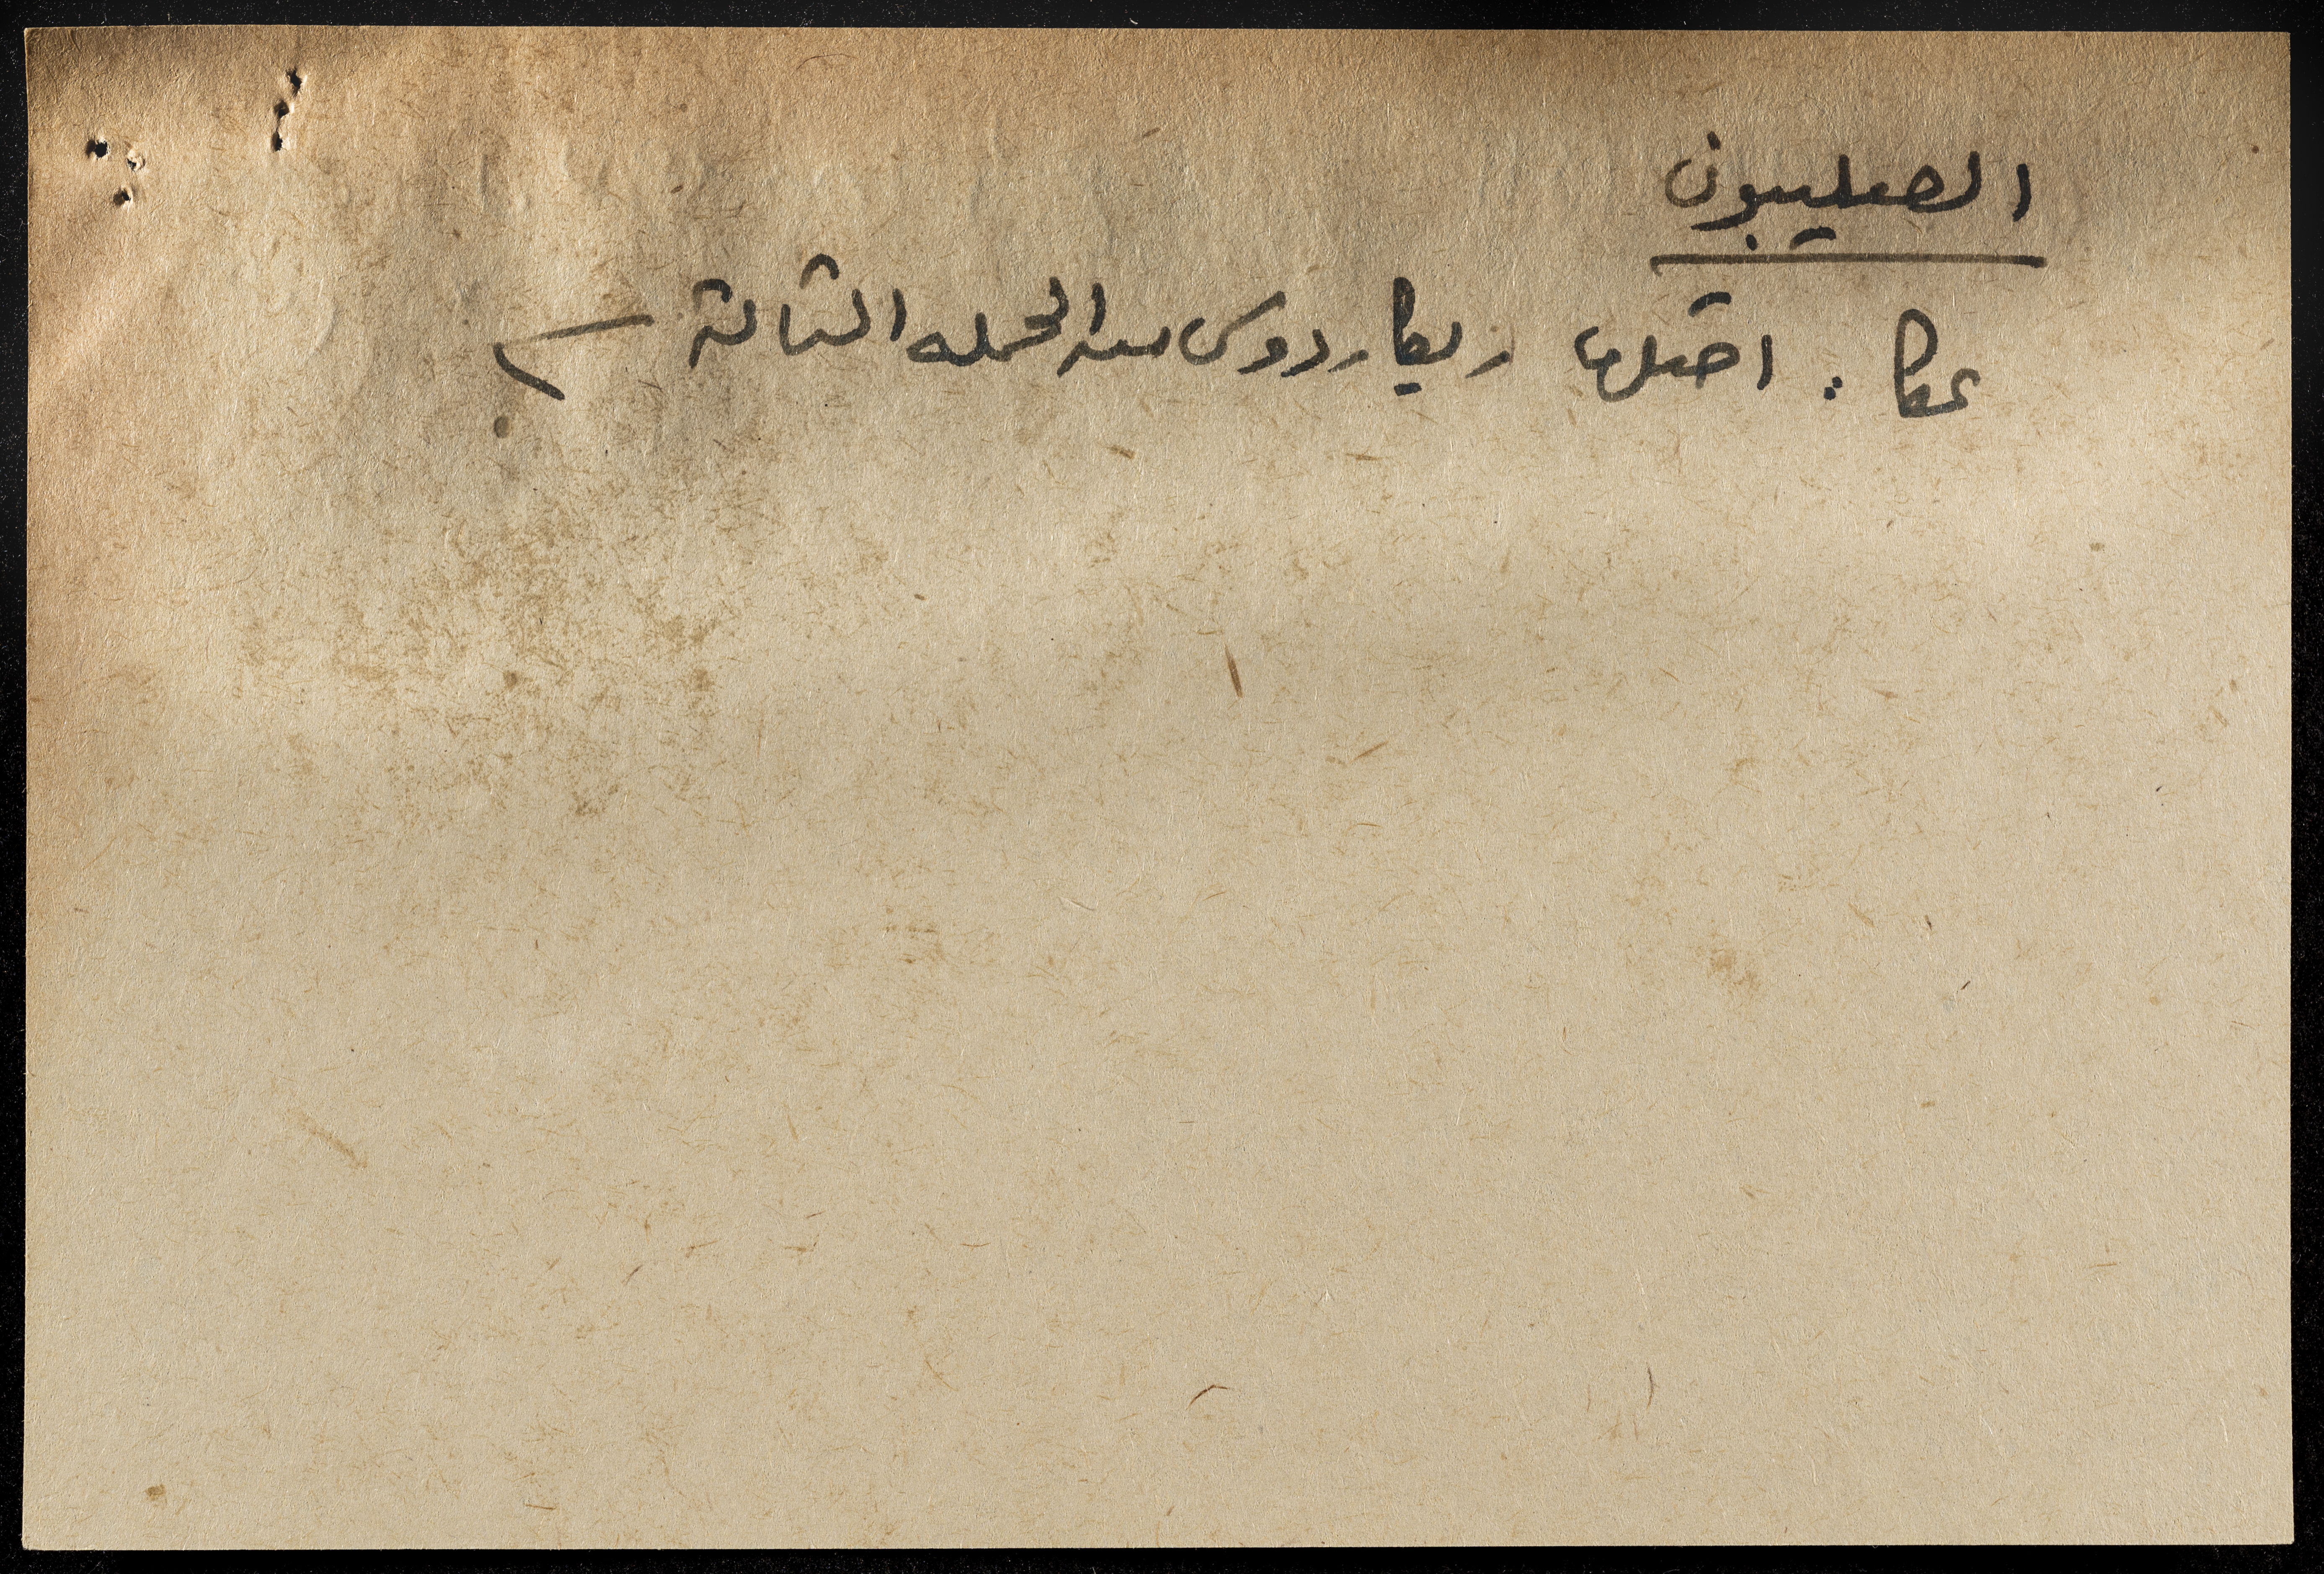 الصليبيون
عكا : احتلها ريكاردوس من الحملة الثالثة